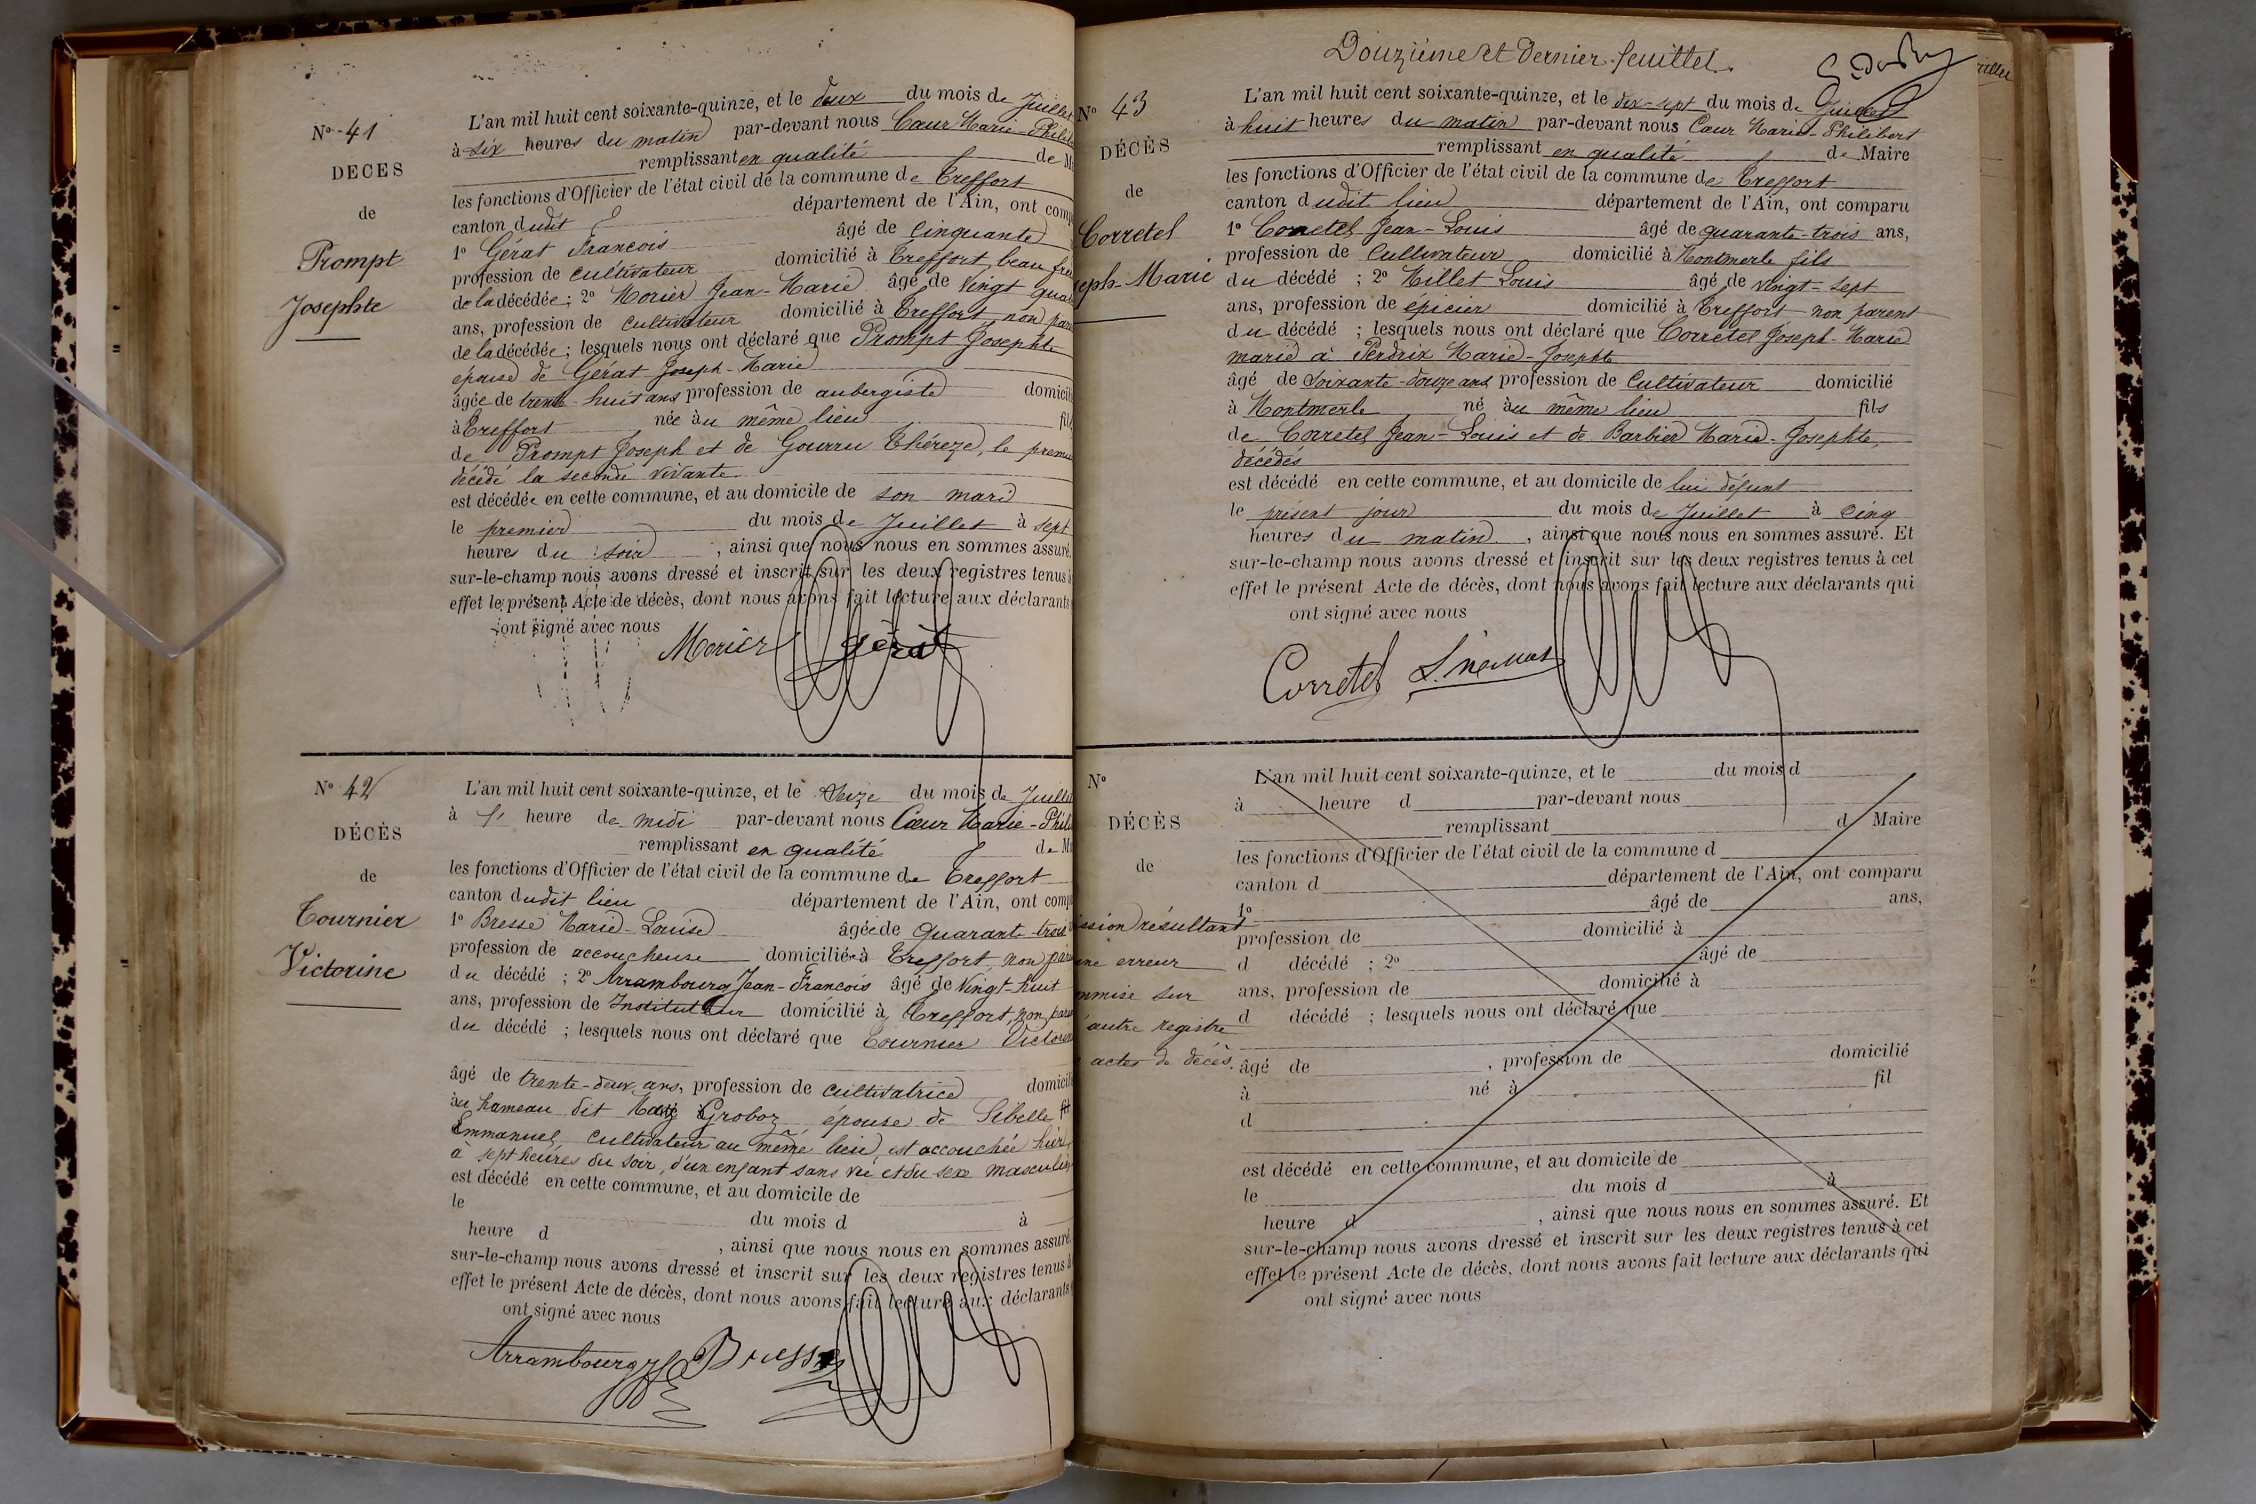 Nº 41
DECES
de
Prompt
Josephte
L'an mil huit cent soixante-quinze, et le deux du mois de Juillet
à six heures du matin par-devant nous Cœur Marie-Philib
remplissant en qualité de M
les fonctions d'Officier de l'état civil de la commune de Treffort
canton dudit département de l'Ain, ont comp
1º Gérat François âgé de Cinquante
profession de cultivateur domicilié à Treffort, beau frè
de la décédée ; 2º Morier Jean-Marie âgé de Vingt qua
ans, profession de cultivateur domicilié à Treffort non par
de la décédée ; lesquels nous ont déclaré que Prompt Josephte
épouse de Gérat Joseph-Marie
âgée de trente-huit ans profession de aubergiste domicili
à Treffort née au même lieu fil
de Prompt Joseph et de Gourru Théreze, le premie
décédé la seconde vivante
est décédée en cette commune, et au domicile de son mari
le premier du mois de Juillet à sept
heures du soir , ainsi que nous nous en sommes assuré.
sur-le-champ nous avons dressé et inscrit sur les deux registres tenus à
effet le présent Acte de décès, dont nous avons fait lecture aux déclarants
ont signé avec nous
Morier Gérat
Nº 42
DÉCÈS
de
Tournier
Victorine
L'an mil huit cent soixante-quinze, et le Seize du mois de Juillet
à heure de midi par-devant nous Cœur Marie-Phili
remplissant en qualité de M
les fonctions d'Officier de l'état civil de la commune de Treffort
canton dudit lieu département de l'Ain, ont comp
1º Bresse Marie-Louise âgée de quarant-trois
profession de accoucheuse domiciliée à Treffort, non par
du décédé ; 2º Arrambourg Jean-François âgé de Vingt-huit
ans, profession de Instituteur domicilié à Treffort, non pare
du décédé ; lesquels nous ont déclaré que Tournier Victorin
âgé de trente-deux ans, profession de cultivatrice domicili
au hameau dit Groboz, épouse de Sibelle
Emmanuel, cultivateur au même lieu, est accouchée hier,
à sept heures du soir, d'un enfant sans vie et du sexe masculin
est décédé en cette commune, et au domicile de
le du mois d à
heure d , ainsi que nous nous en sommes assuré.
sur-le-champ nous avons dressé et inscrit sur les deux registres tenus à
effet le présent Acte de décès, dont nous avons fait lecture aux déclarants
ont signé avec nous
Arrambourg Bresse
Douzième et Dernier feuillet.
Nº 43
DÉCÈS
de
Corretel
eph-Marie
L'an mil huit cent soixante-quinze, et le dix-sept du mois de Juillet
à huit heures du matin par-devant nous Cœur Marie-Philibert
remplissant en qualité de Maire
les fonctions d'Officier de l'état civil de la commune de Treffort
canton dudit lieu département de l'Ain, ont comparu
1º Corretel Jean-Louis âgé de quarante-trois ans,
profession de Cultivateur domicilié à Montmerle fils
du décédé ; 2º Millet Louis âgé de vingt-sept
ans, profession de épicier domicilié à Treffort non parent
du décédé ; lesquels nous ont déclaré que Corretel Joseph-Marie
marié à Perdrix Marie-Josephte
âgé de Soixante-douze ans profession de Cultivateur domicilié
à Montmerle né au même lieu fils
de Corretel Jean-Louis et de Barbier Marie-Josephte,
décédés
est décédé en cette commune, et au domicile de lui défunt
le présent jour du mois de Juillet à cinq
heures du matin , ainsi que nous nous en sommes assuré. Et
sur-le-champ nous avons dressé et inscrit sur les deux registres tenus à cet
effet le présent Acte de décès, dont nous avons fait lecture aux déclarants qui
ont signé avec nous
Corretel
Nº
DÉCÈS
de
ission résultant
une erreur
mmise sur
l'autre registre
actes de décès.
L'an mil huit cent soixante-quinze, et le du mois d
à heure d par-devant nous
remplissant d Maire
les fonctions d'Officier de l'état civil de la commune d
canton d département de l'Ain, ont comparu
1º âgé de ans,
profession de domicilié à
d décédé ; 2º âgé de
ans, profession de domicilié à
d décédé ; lesquels nous ont déclaré que
âgé de , profession de domicilié
à né à fil
d
est décédé en cette commune, et au domicile de
le du mois d à
heure d , ainsi que nous nous en sommes assuré. Et
sur-le-champ nous avons dressé et inscrit sur les deux registres tenus à cet
effet le présent Acte de décès, dont nous avons fait lecture aux déclarants qui
ont signé avec nous